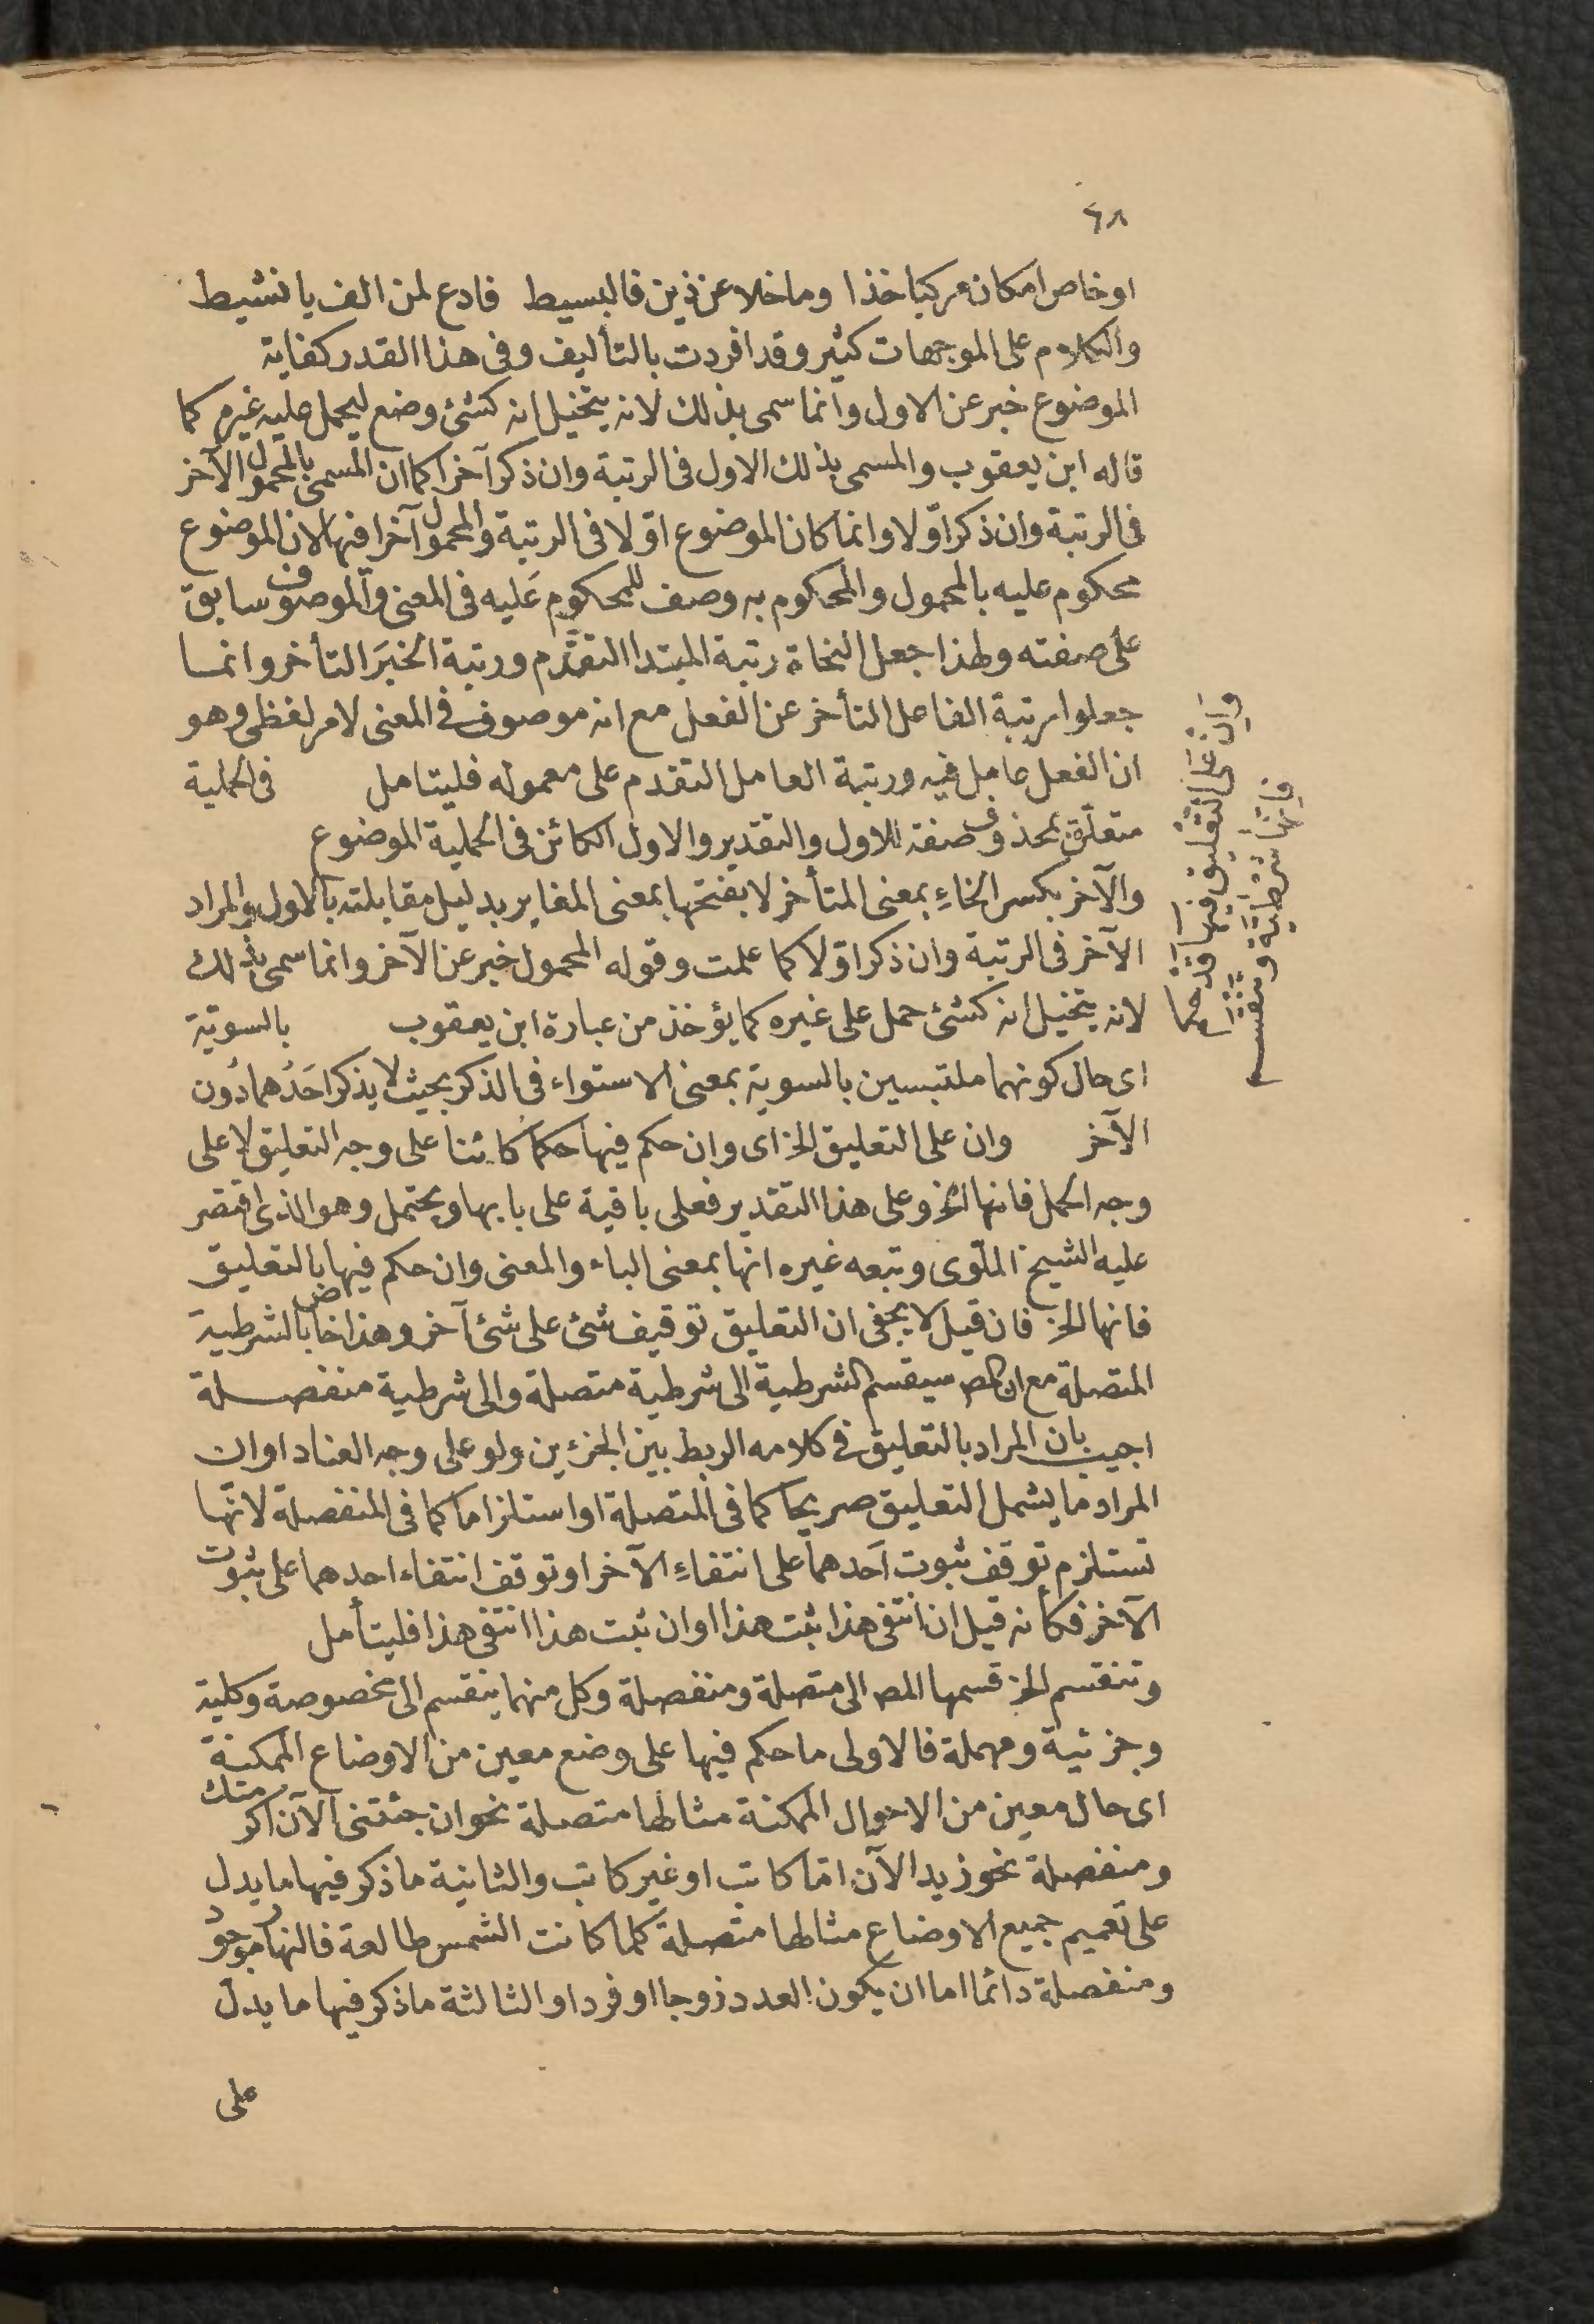 ٦٨
او خاص امكان مركبا خذا وما خلا عن ذين فالبسيط فادع لمن الف يا نشيط
والكلام على الموجهات كثير وقد افردت بالتأليف وفى هذا القدر كفاية
الموضوع خبر عن الاول وانما سمى بذلك لانه يتخيل انه كشئ وضع ليحمل عليه غيره كما
قاله ابن يعقوب والمسمى بذلك الاول فى الرتبة وان ذكر آخرا كما ان المسمى بالمحمول الآخر
فى الرتبة وان ذكر اوّلا وانما كان الموضوع اوّلا فى الرتبة والمحمول آخرا فيها لان الموضوع
محكوم عليه بالمحمول والمحكوم به وصف للمحكوم عَليه فى المعنى والموصوف سابق
على صفته ولهذا جعل النحاة رتبة المبتدا التقدّم ورتبة الخبَر التأخر وانما
جعلوا رتبة الفاعل التأخر عن الفعل مع انه موصوف فى المعنى لامر لفظى وهو
ان الفعل عامل فيه ورتبة العامل التقدم على معموله فليتامل فى الحملية
متعلّق بمحذوف صفة للاول والتقدير والاول الكائن فى الحملية الموضوع
والآخر بكسر الخاءِ بمعنى المتأخر لا بفتحها بمعنى المغاير بدليل مقابلته بالاول والمراد
الآخر فى الرتبة وان ذكر اوّلا كما علمت وقوله المحمول خبر عن الآخر وانما سمى بذلك
لانه يتخيل انه كشئ حمل على غيره كما يؤخذ من عبارة ابن يعقوب بالسويّة
اى حال كونهما ملتبسين بالسوية بمعنى الاستواء فى الذكر بحيث لا يذكر احَدُهما دُون
الآخر وان على التعليق الخ اى وان حكم فيها حكما كائنا على وجه التعليق لا على
وجه الحمل فانها الخ وعلى هذا التقدير فعلى باقية على بابها ويحتمل وهو الذى اقتصر
عليه الشيخ الملّوى وتبعه غيره انها بمعنى الباء والمعنى وان حكم فيها بالتعليق
فانها الخ فان قيل لا يخفى ان التعليق توقيف شئ على شئ آخر وهذا خاص بالشرطية
المتصلة مع ان المص سيقسم الشرطية الى شرطية متصلة والى شرطية منفصلة
اجيب بان المراد بالتعليق فى كلامه الربط بين الجزءين ولو على وجه العناد او ان
المراد ما يشمل التعليق صريحا كما فى المتصلة او استلزاما كما فى المنفصلة لانّها
تستلزم توقف ثبوت اَحدهما على انتفاءِ الآخر او توقف انتفاء احدهما على ثبوت
الآخر فكأنه قيل ان انتفى هذا ثبت هذا او ان ثبت هذا انتفى هذا فليتأمل
وتنقسم الخ قسمها المص الى متصلة ومنفصلة وكل منهما ينقسم الى مخصوصة وكلية
وجزئية ومهملة فالاولى ما حكم فيها على وضع معين من الاوضاع الممكنة
اى حال معين من الاحوال الممكنة مثالها متصلة نحو ان جئتنى الآن اكرمتك
ومنفصلة نحو زيد الآن امّا كاتب او غير كاتب والثانية ما ذكر فيها ما يدل
على تعميم جميع الاوضاع مثالها متصلة كلما كانت الشمس طالعة فالنهار موجود
ومنفصلة دائما اما ان يكون العدد زوجا او فردا والثالثة ما ذكر فيها ما يدل
على
وان على التعليق فيها قد حكما
فانها شرطية وتنقسم